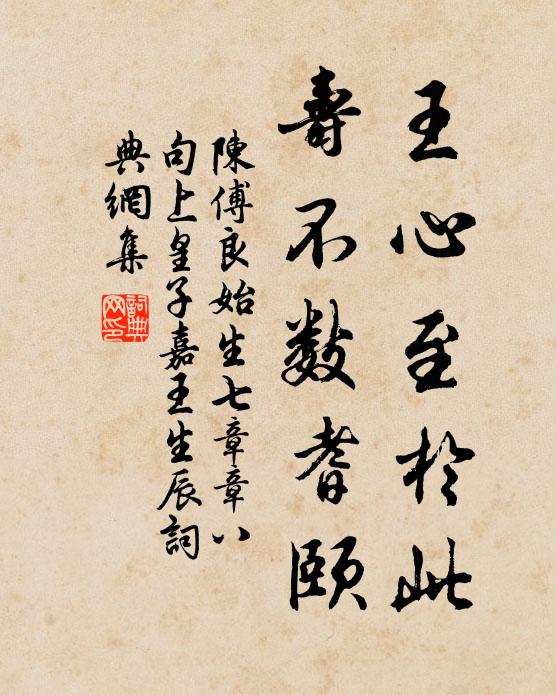 王心至於此
壽不數耆頤
陳傅良始生七章章八
句上皇子嘉王生辰詞
典網集
詞典
网印